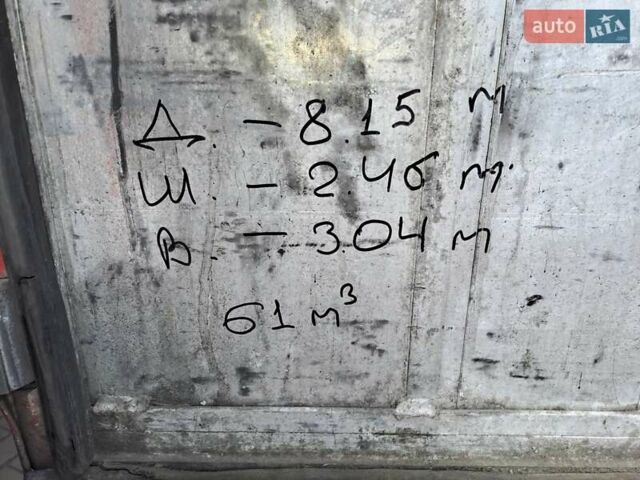 auto RIA.com
Д. - 8.15 м
Ш. - 2.46 м.
В. - 3.04 м
61 м³